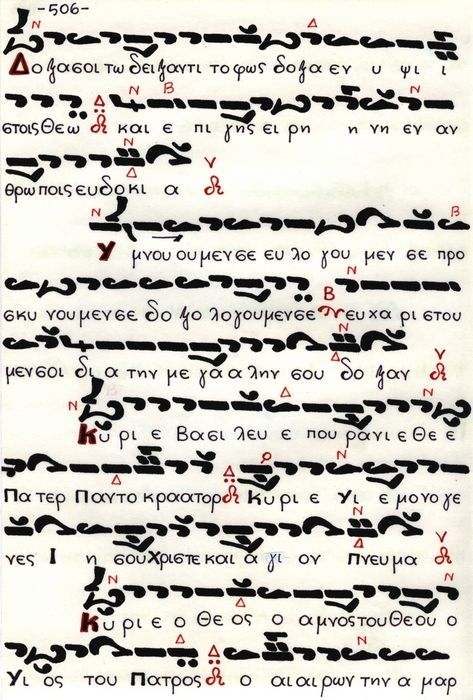 -506-
Δοξασοι τω δειξαντι το φως δοξα εν υ ψι ι
στοις Θεω και ε πι γης ει ρη η νη εν αν
θρω ποις ευ δο κι α
Υ μνου ου μεν σε ευ λο γου μεν σε προ
σκυ νου μεν σε δο ξο λο γου μεν σε ευ χα ρι στου
μεν σοι δι α την με γα α λην σου δο ξαν
Κυ ρι ε Βα σι λευ ε που ρα νι ε Θε ε
Πα τερ Παν το κρα α τορ Κυ ρι ε Υι ε μο νο γε
νες Ι η σου Χρι στε και α γι ον Πνευ μα
Κυ ρι ε ο Θε ος ο α μνος του Θε ου ο
Υι ος του Πα τρος ο αι αι ρων την α μαρ